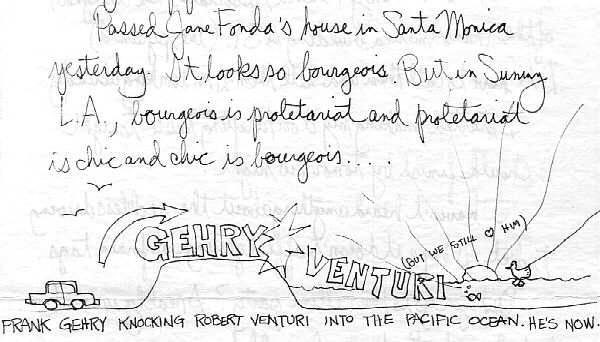 Passed Jane Fonda's house in Santa Monica
yesterday. It looks so bourgeois. But in Sunny
L.A., bourgeois is proletariat and proletariat
is chic and chic is bourgeois....
GEHRY
(BUT WE STILL ♡ HIM)
VENTURI
FRANK GEHRY KNOCKING ROBERT VENTURI INTO THE PACIFIC OCEAN. HE'S NOW.